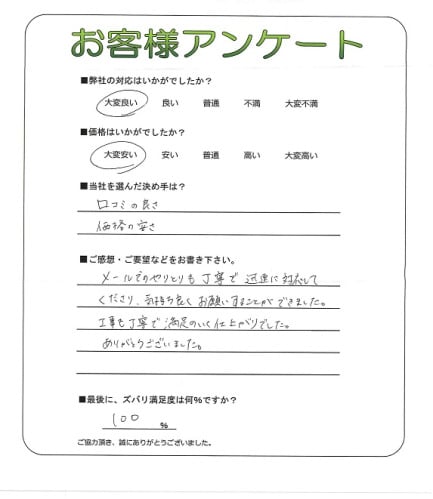 お客様アンケート
■弊社の対応はいかがでしたか？
大変良い 良い 普通 不満 大変不満
■価格はいかがでしたか？
大変安い 安い 普通 高い 大変高い
■当社を選んだ決め手は？
口コミの良さ
価格の安さ
■ご感想・ご要望などをお書き下さい。
メールでのやりとりも丁寧で迅速に対応して
くださり、気持ち良くお願いすることができました。
工事も丁寧で満足のいく仕上がりでした。
ありがとうございました。
■最後に、ズバリ満足度は何%ですか？
100 %
ご協力頂き、誠にありがとうございました。